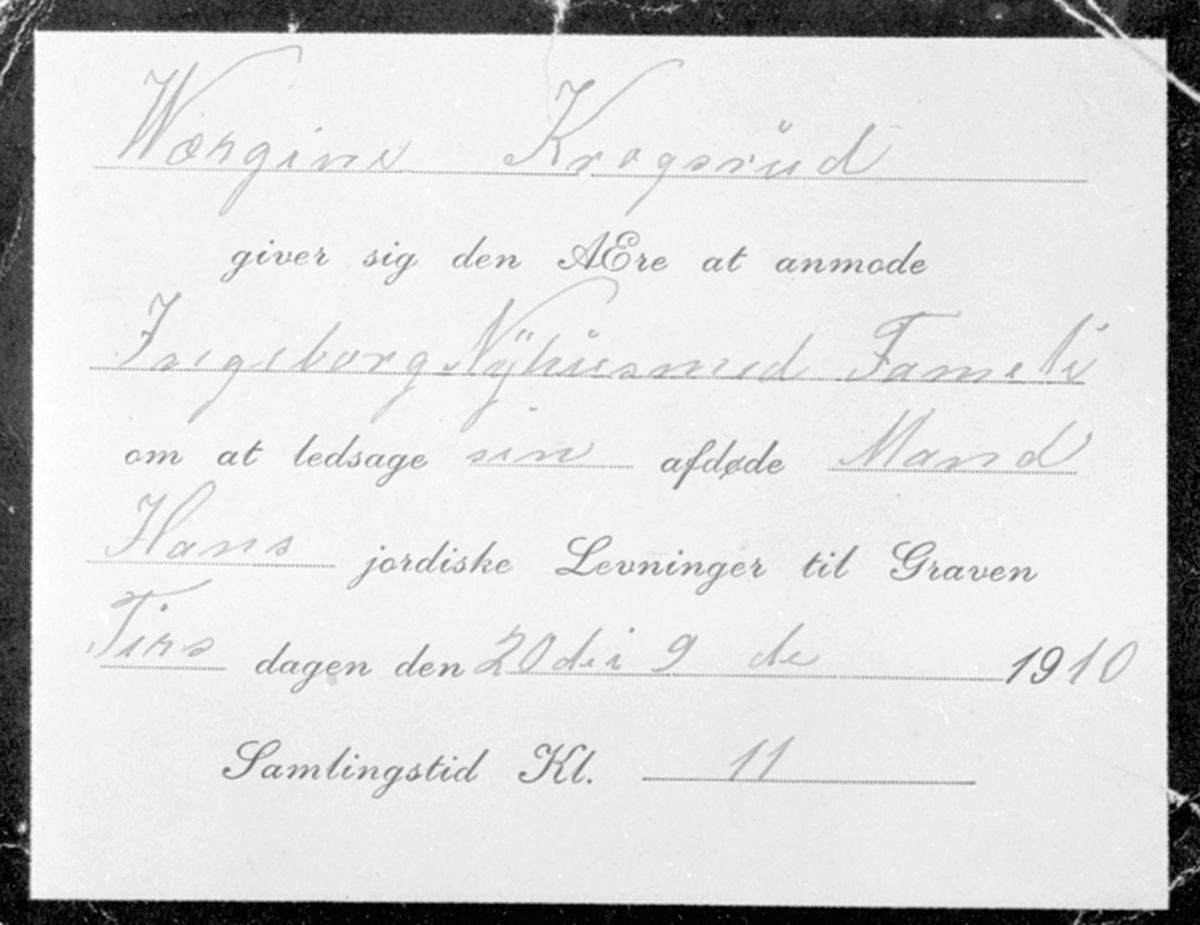 Wærgine Krogsrüd
giver sig den AEre at anmode
Ingeborg Nÿhüs med Fameli
om at ledsage sin afdøde Mand
Hans jordiske Levninger til Graven
Tirs dagen den 20 dei 9 de 1910
Samlingstid Kl. 11